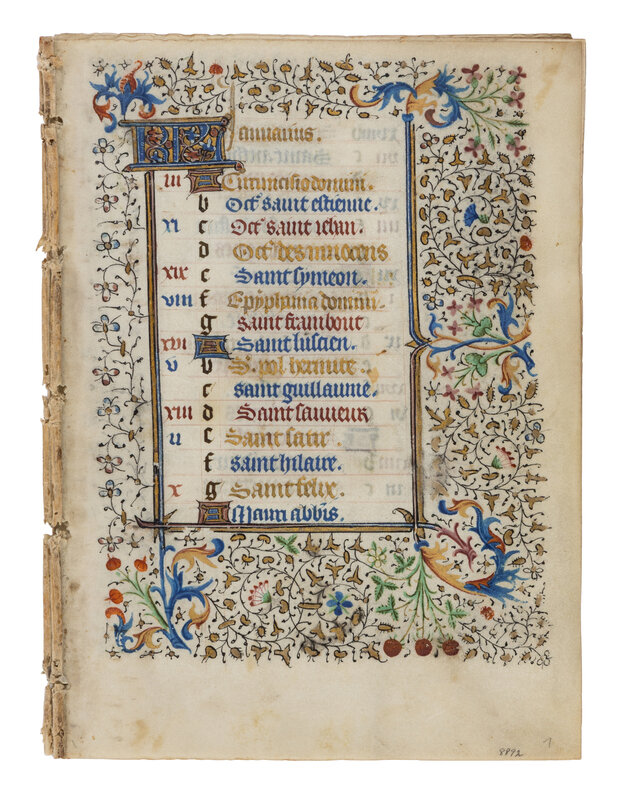 KL Januarius.
iii A Circuncisio domini.
b Oct saint estienne.
xi c Oct saint iehan.
d Oct des innocens
xix e Saint symeon.
viii f Epyphania domini.
g saint frambout
xvi A Saint luscien.
v b S. pol hermite.
c saint guillaume.
xiii d Saint sauueur
ii e Saint satir.
f saint hilaire.
x g Saint felix.
A Mauri abbis.
8892 1